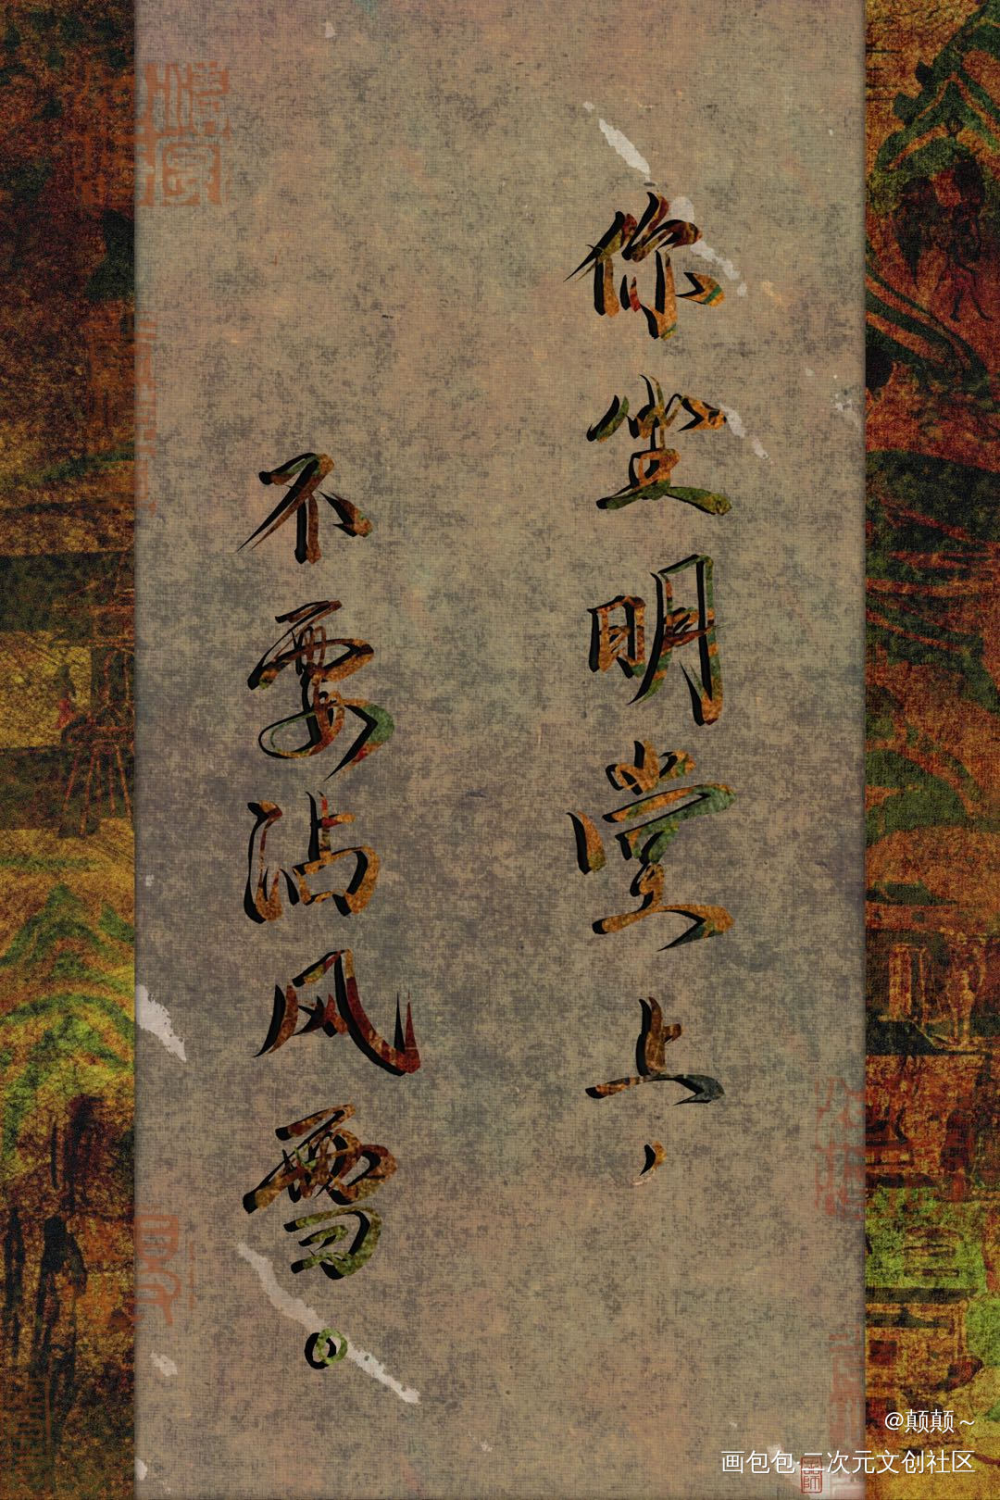 你坐明堂上，
不要沾风雪。
@颠颠~
画包包·二次元文创社区